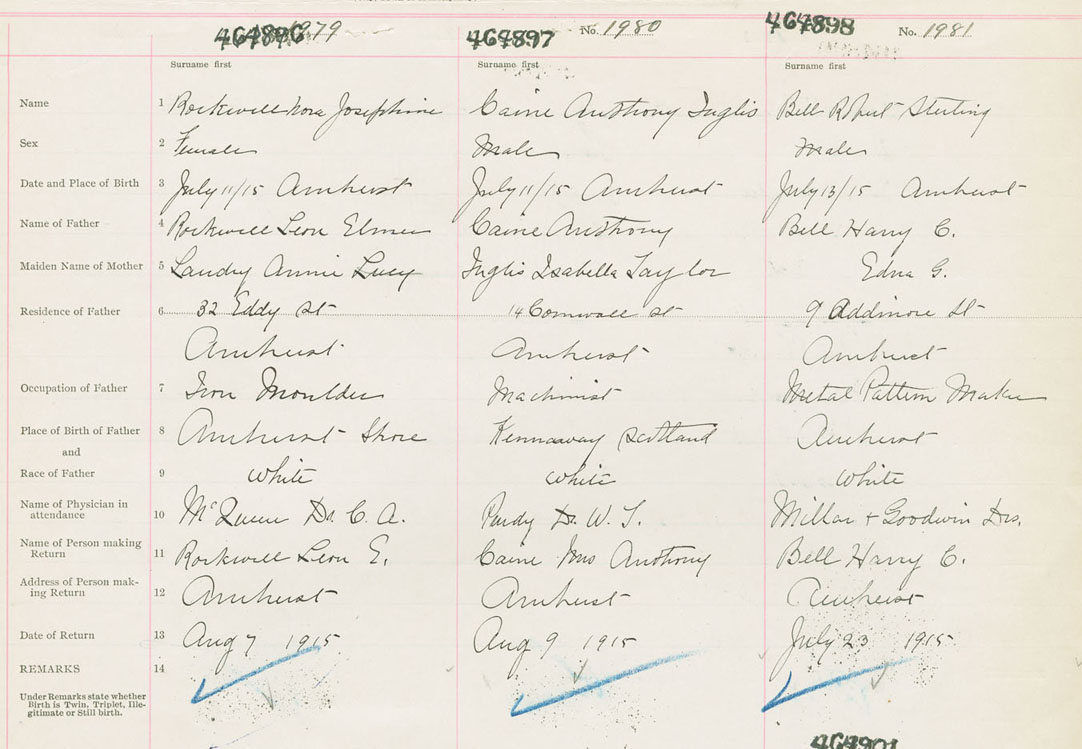 464896 1979 464897 No. 1980 464898 No. 1981
Surname first Surname first Surname first
Name 1 Rockwell Nora Josephine Caine Anthony Inglis Bell Robert Sterling
Sex 2 Female Male Male
Date and Place of Birth 3 July 11/15 Amherst July 11/15 Amherst July 13/15 Amherst
Name of Father 4 Rockwell Leon Elmer Caine Anthony Bell Harry C.
Maiden Name of Mother 5 Landry Annie Lucy Inglis Isabella Taylor Edna G.
Residence of Father 6 32 Eddy St 14 Cornwall St 9 Addinore St
Amherst Amherst Amherst
Occupation of Father 7 Iron Moulder Machinist Metal Pattern Maker
Place of Birth of Father 8 Amherst Shore Kennaway Scotland Amherst
and
Race of Father 9 White White White
Name of Physician in
attendance 10 McQueen Dr. C. A. Purdy Dr. W. T. Millar + Goodwin Drs.
Name of Person making
Return 11 Rockwell Leon E. Caine Mrs Anthony Bell Harry C.
Address of Person mak-
ing Return 12 Amherst Amherst Amherst
Date of Return 13 Aug 7 1915 Aug 9 1915 July 23 1915
REMARKS 14
Under Remarks state whether
Birth is Twin, Triplet, Ille-
gitimate or Still birth.
464901